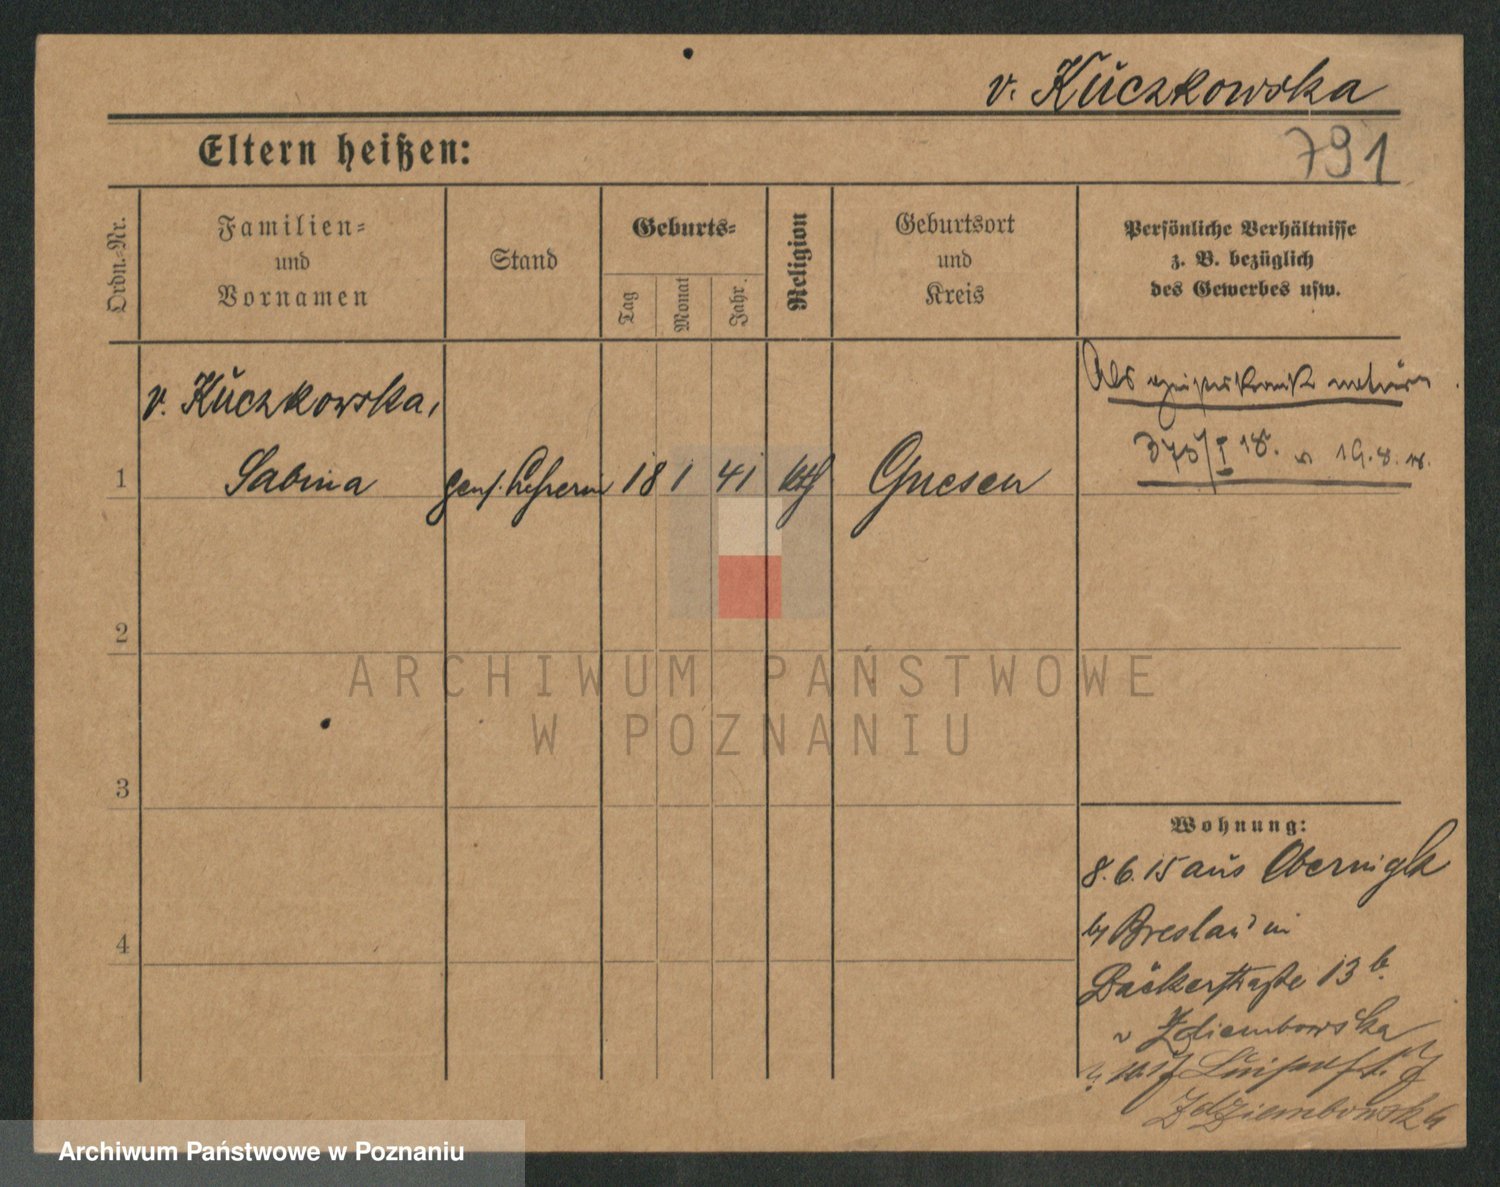 v. Kuczkowska
791
Eltern heißen:
Ordn.-Nr.
Familien-
und
Vornamen
Stand
Geburts-
Tag
Monat
Jahr.
Religion
Geburtsort
und
Kreis
Persönliche Verhältnisse
z. B. bezüglich
des Gewerbes usw.
v. Kuczkowska,
1 Sabina gens. Lehrerin 18 1 41 kth Gnesen
Als
19.8.18.
2
3
4
Wohnung:
8.6.15 aus Obernigk
by Breslau in
Bäckerstraße 13 b.
v Zdiembowska
Zdziembowska
ARCHIWUM PAŃSTWOWE
W POZNANIU
Archiwum Państwowe w Poznaniu